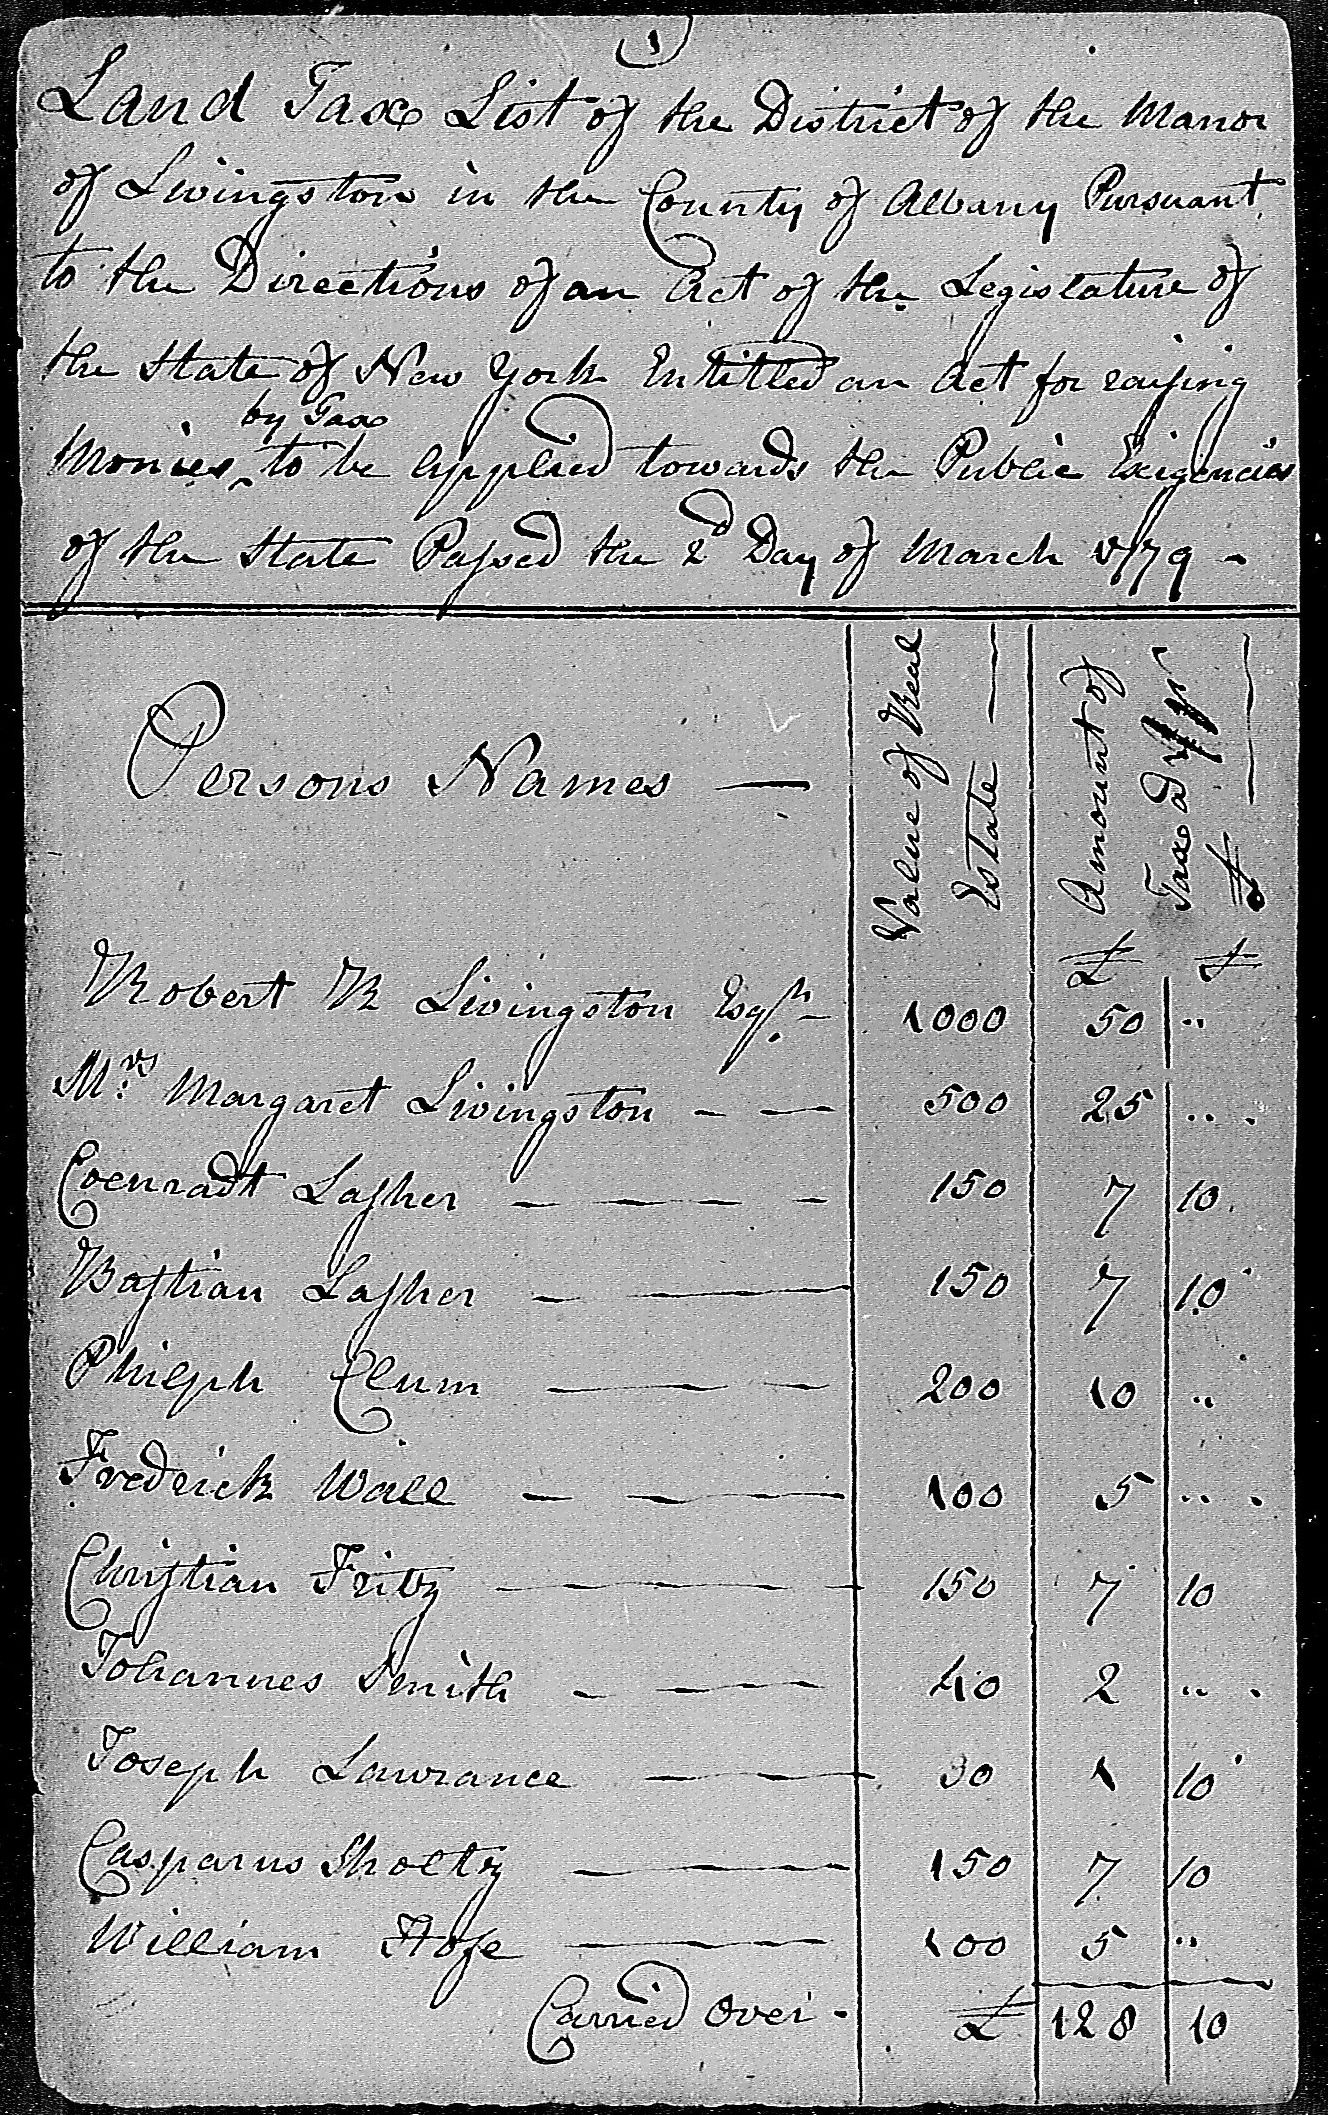 1
Land Tax List of the District of the Manor
of Livingston in the County of Albany Pursuant
to the Directions of an Act of the Legislature of
the State of New York Entitled an Act for raising
by Tax
Monies ‸ to be Applied towards the Public Exigencies
of the State Passed the 2d Day of March 1779 -
Persons Names —
Value of Real
Estate —
Amount of
Tax a
£
£
Robert R Livingston Esqr. - 1000 50 "
Mrs. Margaret Livingston - - 500 25 "
Coenradt Lasher - - - - 150 7 10
Bastian Lasher - - 150 7 10
Philiph Clum - - - 200 10 "
Frederick Wall - - 100 5 "
Christian Fritz - - 150 7 10
Johannes Smith - - 40 2 "
Joseph Lawrance - - 30 1 10
Casparus Sholtz - - 150 7 10
William Hose - 100 5 "
Carried Over - £ 128 10